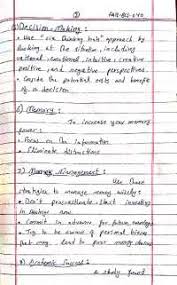 Decision-Making:
• Use "six thinking hats" approach by
looking at the situation, including
rational, emotional, intuitive, creative
positive and negative perspectives.
• Consider the potential costs and benefit
of a decision
Memory:
To increase your memory
power:
• Focus on the information
• Eliminate distractions
Money Management:
Use these
strategies to manage money wisely
• Don't procrastinate start investing
in savings now.
• Commit in advance for future savings
• Try to be aware of personal biases
that may lead to poor money
Academic Success:
a study found